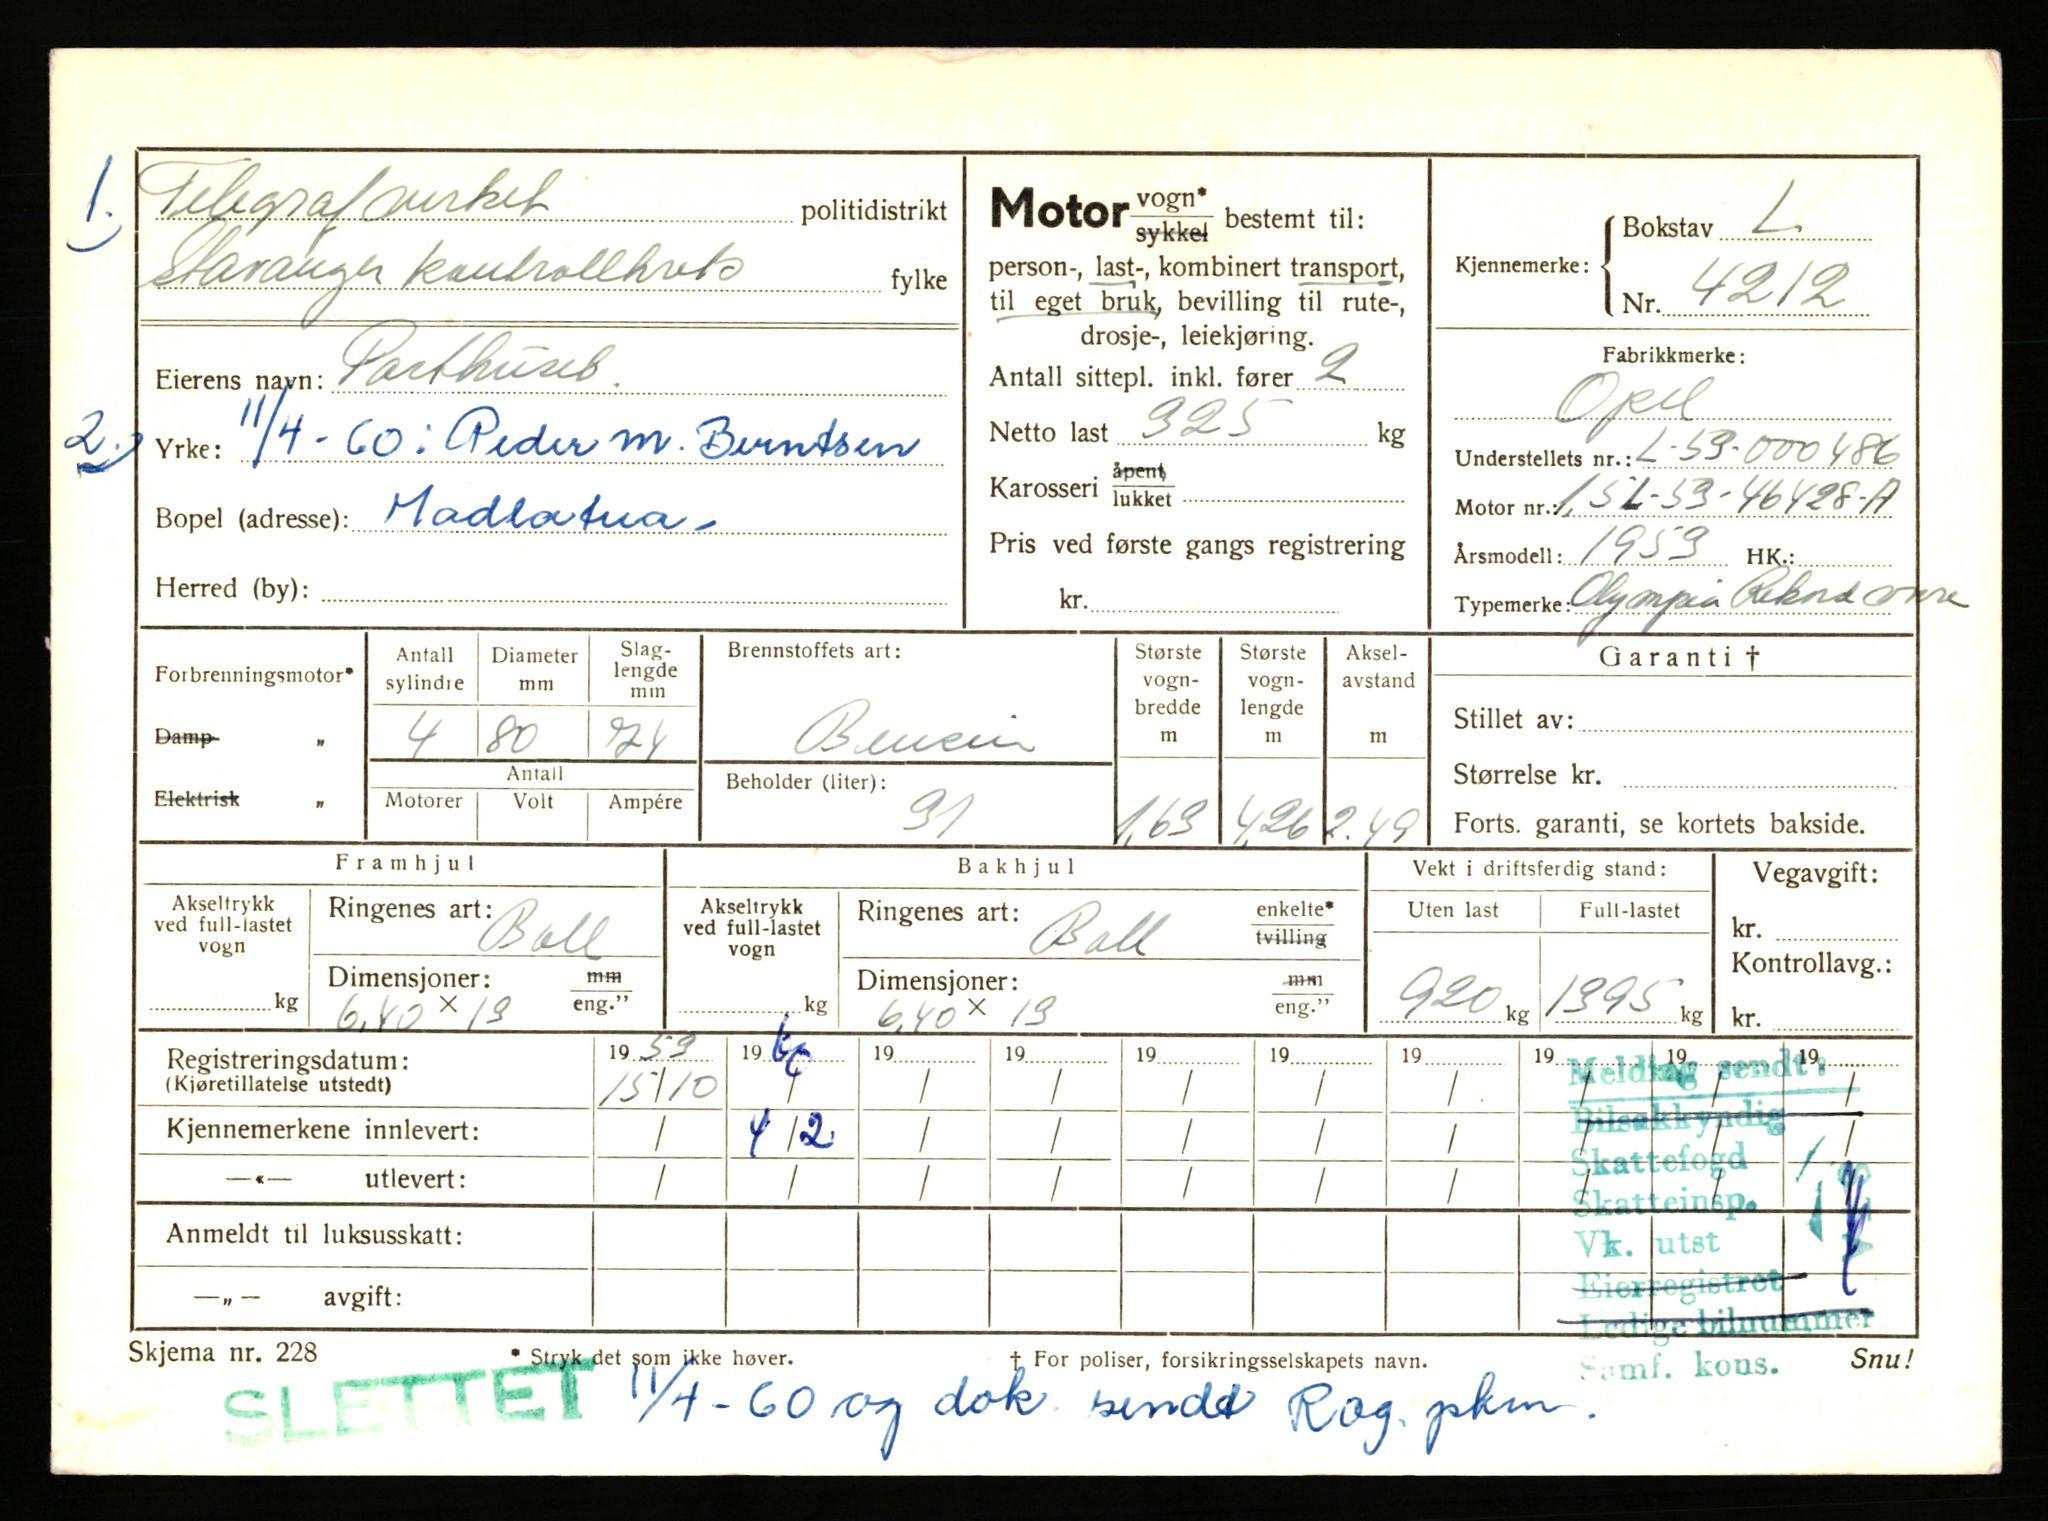 1. Telegrafverket politidistrikt
Stavanger kontrollkrets fylke
Eierens navn: Posthuset.
2. Yrke: 11/4-60: Peder M. Berntsen
Bopel (adresse): Madlatua
Herred (by):
Motor vogn* sykkel bestemt til:
person-, last-, kombinert transport,
til eget bruk, bevilling til rute-,
drosje-, leiekjøring.
Antall sittepl. inkl. fører 2
Netto last 325 kg
Karosseri åpent lukket
Pris ved første gangs registrering
kr.
Kjennemerke: Bokstav L
Nr. 4212
Fabrikkmerke:
Opel
Understellets nr.: L-53-000486
Motor nr.: 1,5L-53-46428-A
Årsmodell: 1953 HK.:
Typemerke: Olympia Rekord
Forbrenningsmotor*
Damp "
Elektrisk "
Antall sylindre
Diameter mm
Slaglengde mm
4 80 74
Antall
Motorer Volt Ampére
Brennstoffets art:
Bensin
Beholder (liter):
31
Største vogn-bredde m
1,63
Største vogn-lengde m
4,26
Aksel-avstand m
2.49
Garanti †
Stillet av:
Størrelse kr.
Forts. garanti, se kortets bakside.
Framhjul
Akseltrykk ved full-lastet vogn
kg
Ringenes art: Ball
Dimensjoner: mm eng."
6,40 × 13
Bakhjul
Akseltrykk ved full-lastet vogn
kg
Ringenes art: Ball enkelte* tvilling
Dimensjoner: mm eng."
6,40 × 13
Vekt i driftsferdig stand:
Uten last Full-lastet
920 kg 1395 kg
Vegavgift:
kr.
Kontrollavg.:
kr.
Registreringsdatum: 1953 1960 19 19 19 19 19 19 19 19
(Kjøretillatelse utstedt) 15/10 / / / / / / / / /
Kjennemerkene innlevert: / 4/2 / / / / / / / /
—«— utlevert: / / / / / / / / / /
Anmeldt til luksusskatt:
—„— avgift:
Melding sendt:
Bilsakkyndig
Skattefogd
Skatteinsp.
Vk. utst
Eierregistret
Ledige bilnummer
Samf. kons.
Skjema nr. 228 * Stryk det som ikke høver. † For poliser, forsikringsselskapets navn. Snu!
SLETTET 11/4-60 og dok. sendt Rog. pkm.